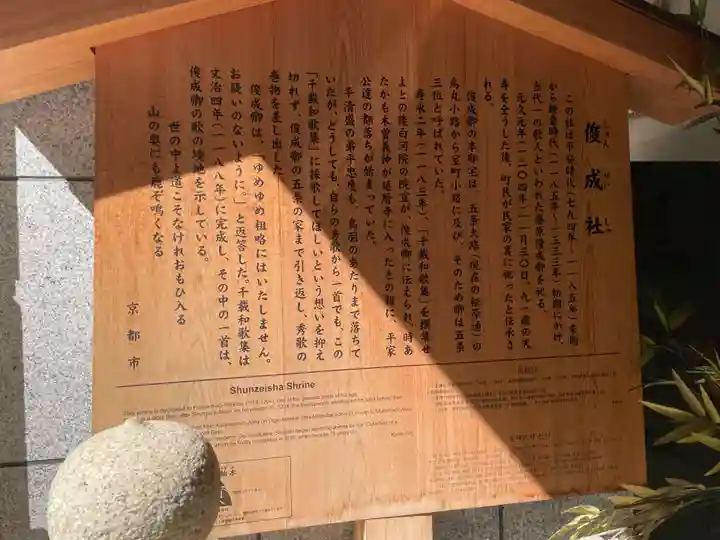 俊成社
しゅん ぜい しゃ
この社は平安時代(七九四年～一一八五年)末期
から鎌倉時代(一一八五年～一三三三年)初期にかけ、
当代一の歌人といわれた藤原俊成卿を祀る。
元久元年(一二〇四年)一一月三〇日、九一歳の天
寿を全うした後、町民が民家の裏に祀ったと伝承さ
れる。
俊成卿の本邸宅は、五条大路(現在の松原通)の
烏丸小路から室町小路に及び、そのため卿は五条
三位と呼ばれていた。
寿永二年(一一八三年)、「千載和歌集」を撰集せ
よとの後白河院の院宣が、俊成卿に伝えられ、時あ
たかも木曽義仲が延暦寺に入ったとの報に、平家
公達の都落ちが始まっていた。
平清盛の弟平忠度も、鳥羽のあたりまで落ちて
いたが、どうしても、自らの秀歌から一首でも、この
「千載和歌集」に採歌してほしいという想いを抑え
切れず、俊成卿の五条の家まで引き返し、秀歌の
巻物を差し出した。
俊成卿は、「ゆめゆめ粗略にはいたしません。
お疑いのないように。」と返答した。千載和歌集は
文治四年(一一八八年)に完成し、その中の一首は、
俊成卿の歌の境地を示している。
世の中よ道こそなけれおもひ入る
山の奥にも鹿ぞ鳴くなる
京都市
Shunzeisha Shrine